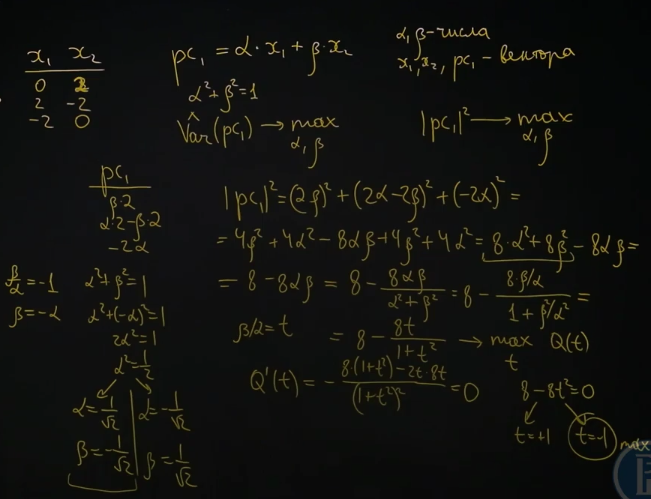 x₁ x₂
0 2
2 -2
-2 0
pc₁ = α·x₁ + β·x₂
α² + β² = 1
V̂ar(pc₁) → max
α, β
α, β - числа
x₁, x₂, pc₁ - вектора
|pc₁|² → max
α, β
pc₁
β·2
α·2-β·2
-2α
|pc₁|² = (2β)² + (2α-2β)² + (-2α)² =
= 4β² + 4α² - 8αβ + 4β² + 4α² = 8·α² + 8β² - 8αβ =
= 8 - 8αβ = 8 - 8αβ/(α² + β²) = 8 - (8β/α)/(1 + β²/α²) =
β/α = t
= 8 - 8t/(1+t²) → max Q(t)
t
Q'(t) = - (8·(1+t²) - 2t·8t)/(1+t²)² = 0
8 - 8t² = 0
t=+1 t=-1 max
β/α = -1
β = -α
α² + β² = 1
α² + (-α)² = 1
2α² = 1
α² = 1/2
α = 1/√2 α = -1/√2
β = -1/√2 β = 1/√2